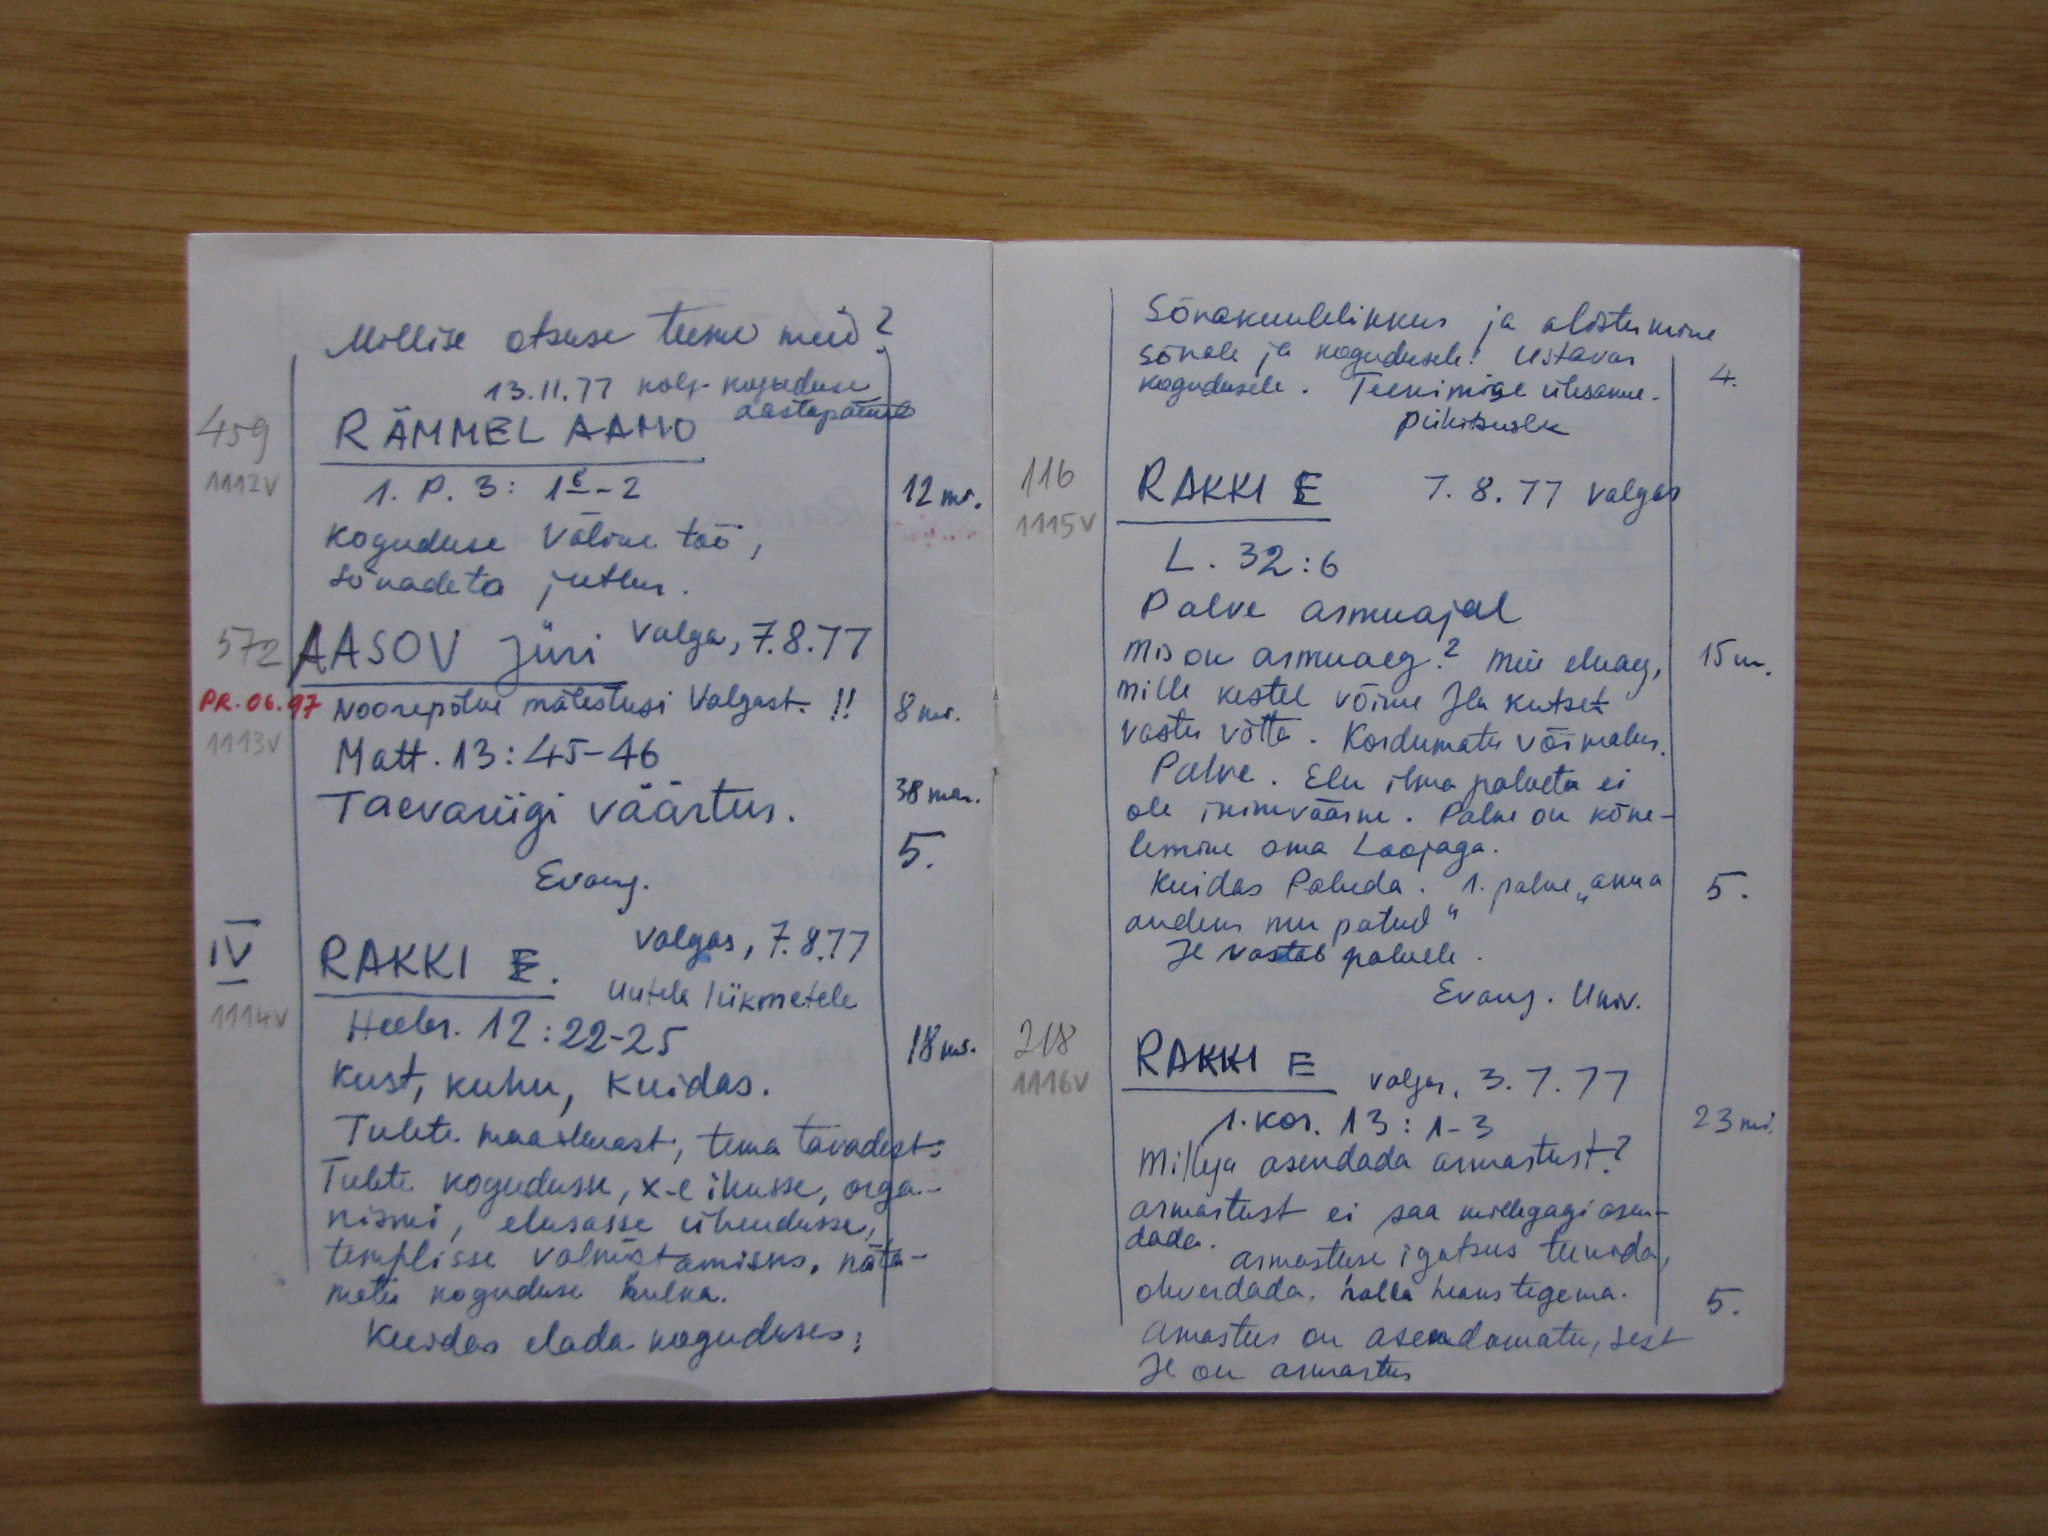 Millise otsuse teeme meie?
13.11.77 koguduse
aastapäeval
459 RÄMMEL AAMO
1112V 1. P. 3: 1-2 12 mi.
Koguduse väline töö,
sõnadeta jutlus.
572 AASOV Jüri Valga, 7.8.77
PR. 06.97 Noorepõlve mälestusi Valgast. !! 8 mi.
1113V Matt. 13:45-46
Taevariigi väärtus. 38 min.
5.
Evang.
IV RAKKI E. Valgas, 7.8.77
uutele liikmetele
1114V Heebr. 12:22-25 18 mi.
Kust, kuhu, kuidas.
Tulete maailmast, tema tavadest.
Tulete kogudusse, X-e ihusse, orga-
nismi, elusasse ühendusse,
templisse valmistamisus, näta-
matu koguduse hulka.
Kuidas elada koguduses:
Sõnakuulelikkus ja alistumine
sõnale ja kogudusele! Ustavus
kogudusele. Teenimise ülesanne. 4.
Pühitsusele
116 RAKKI E 7.8.77 Valgas
1115V
L. 32:6
Palve armuajal
Mis on armuaeg? Meie eluaeg, 15 m.
mille kestel võime Jla kutset
vastu võtta. Kordumatu võimalus.
Palve. Elu ilma palveta ei
ole inimväärne. Palve on kõne-
lemine oma Loojaga.
Kuidas Paluda. 1. palve „anna 5.
andeks mu patud"
Jl vastab palvele.
Evang. Univ.
218 RAKKI E Valgas, 3.7.77
1116V
1. Kor. 13:1-3 23 mi.
Millega asendada armastust?
armastust ei saa millegagi asen-
dada. armastuse igatsus teenida,
ohverdada. halba heaks tegema. 5.
Armastus on asendamatu, sest
Jl on armastus